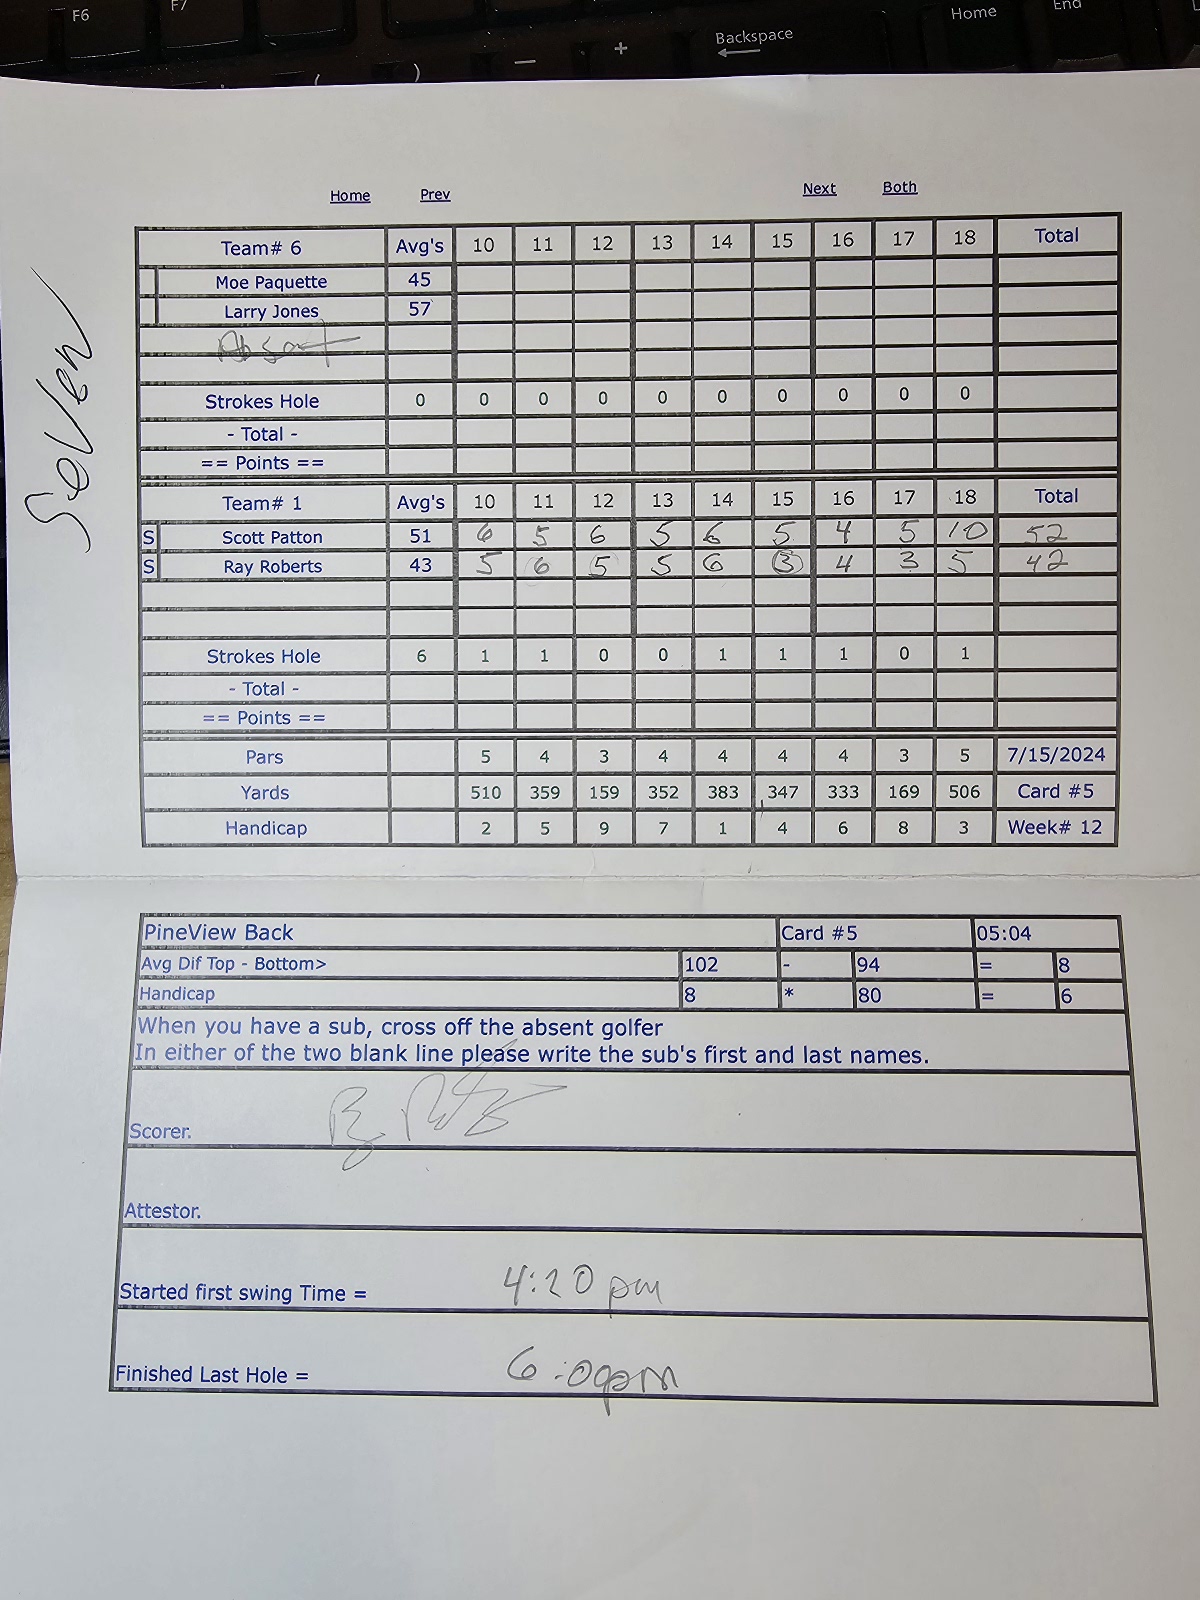 F6 F7 Home End
+ Backspace
( ) —
Home Prev Next Both
Seven
Team# 6 Avg's 10 11 12 13 14 15 16 17 18 Total
Moe Paquette 45
Larry Jones 57
Absent
Strokes Hole 0 0 0 0 0 0 0 0 0 0
- Total -
== Points ==
Team# 1 Avg's 10 11 12 13 14 15 16 17 18 Total
S Scott Patton 51 6 5 6 5 6 5 4 5 10 52
S Ray Roberts 43 5 6 5 5 6 3 4 3 5 42
Strokes Hole 6 1 1 0 0 1 1 1 0 1
- Total -
== Points ==
Pars 5 4 3 4 4 4 4 3 5 7/15/2024
Yards 510 359 159 352 383 347 333 169 506 Card #5
Handicap 2 5 9 7 1 4 6 8 3 Week# 12
PineView Back Card #5 05:04
Avg Dif Top - Bottom> 102 - 94 = 8
Handicap 8 * 80 = 6
When you have a sub, cross off the absent golfer
In either of the two blank line please write the sub's first and last names.
Scorer.
Attestor.
Started first swing Time = 4:20 pm
Finished Last Hole = 6:00pm